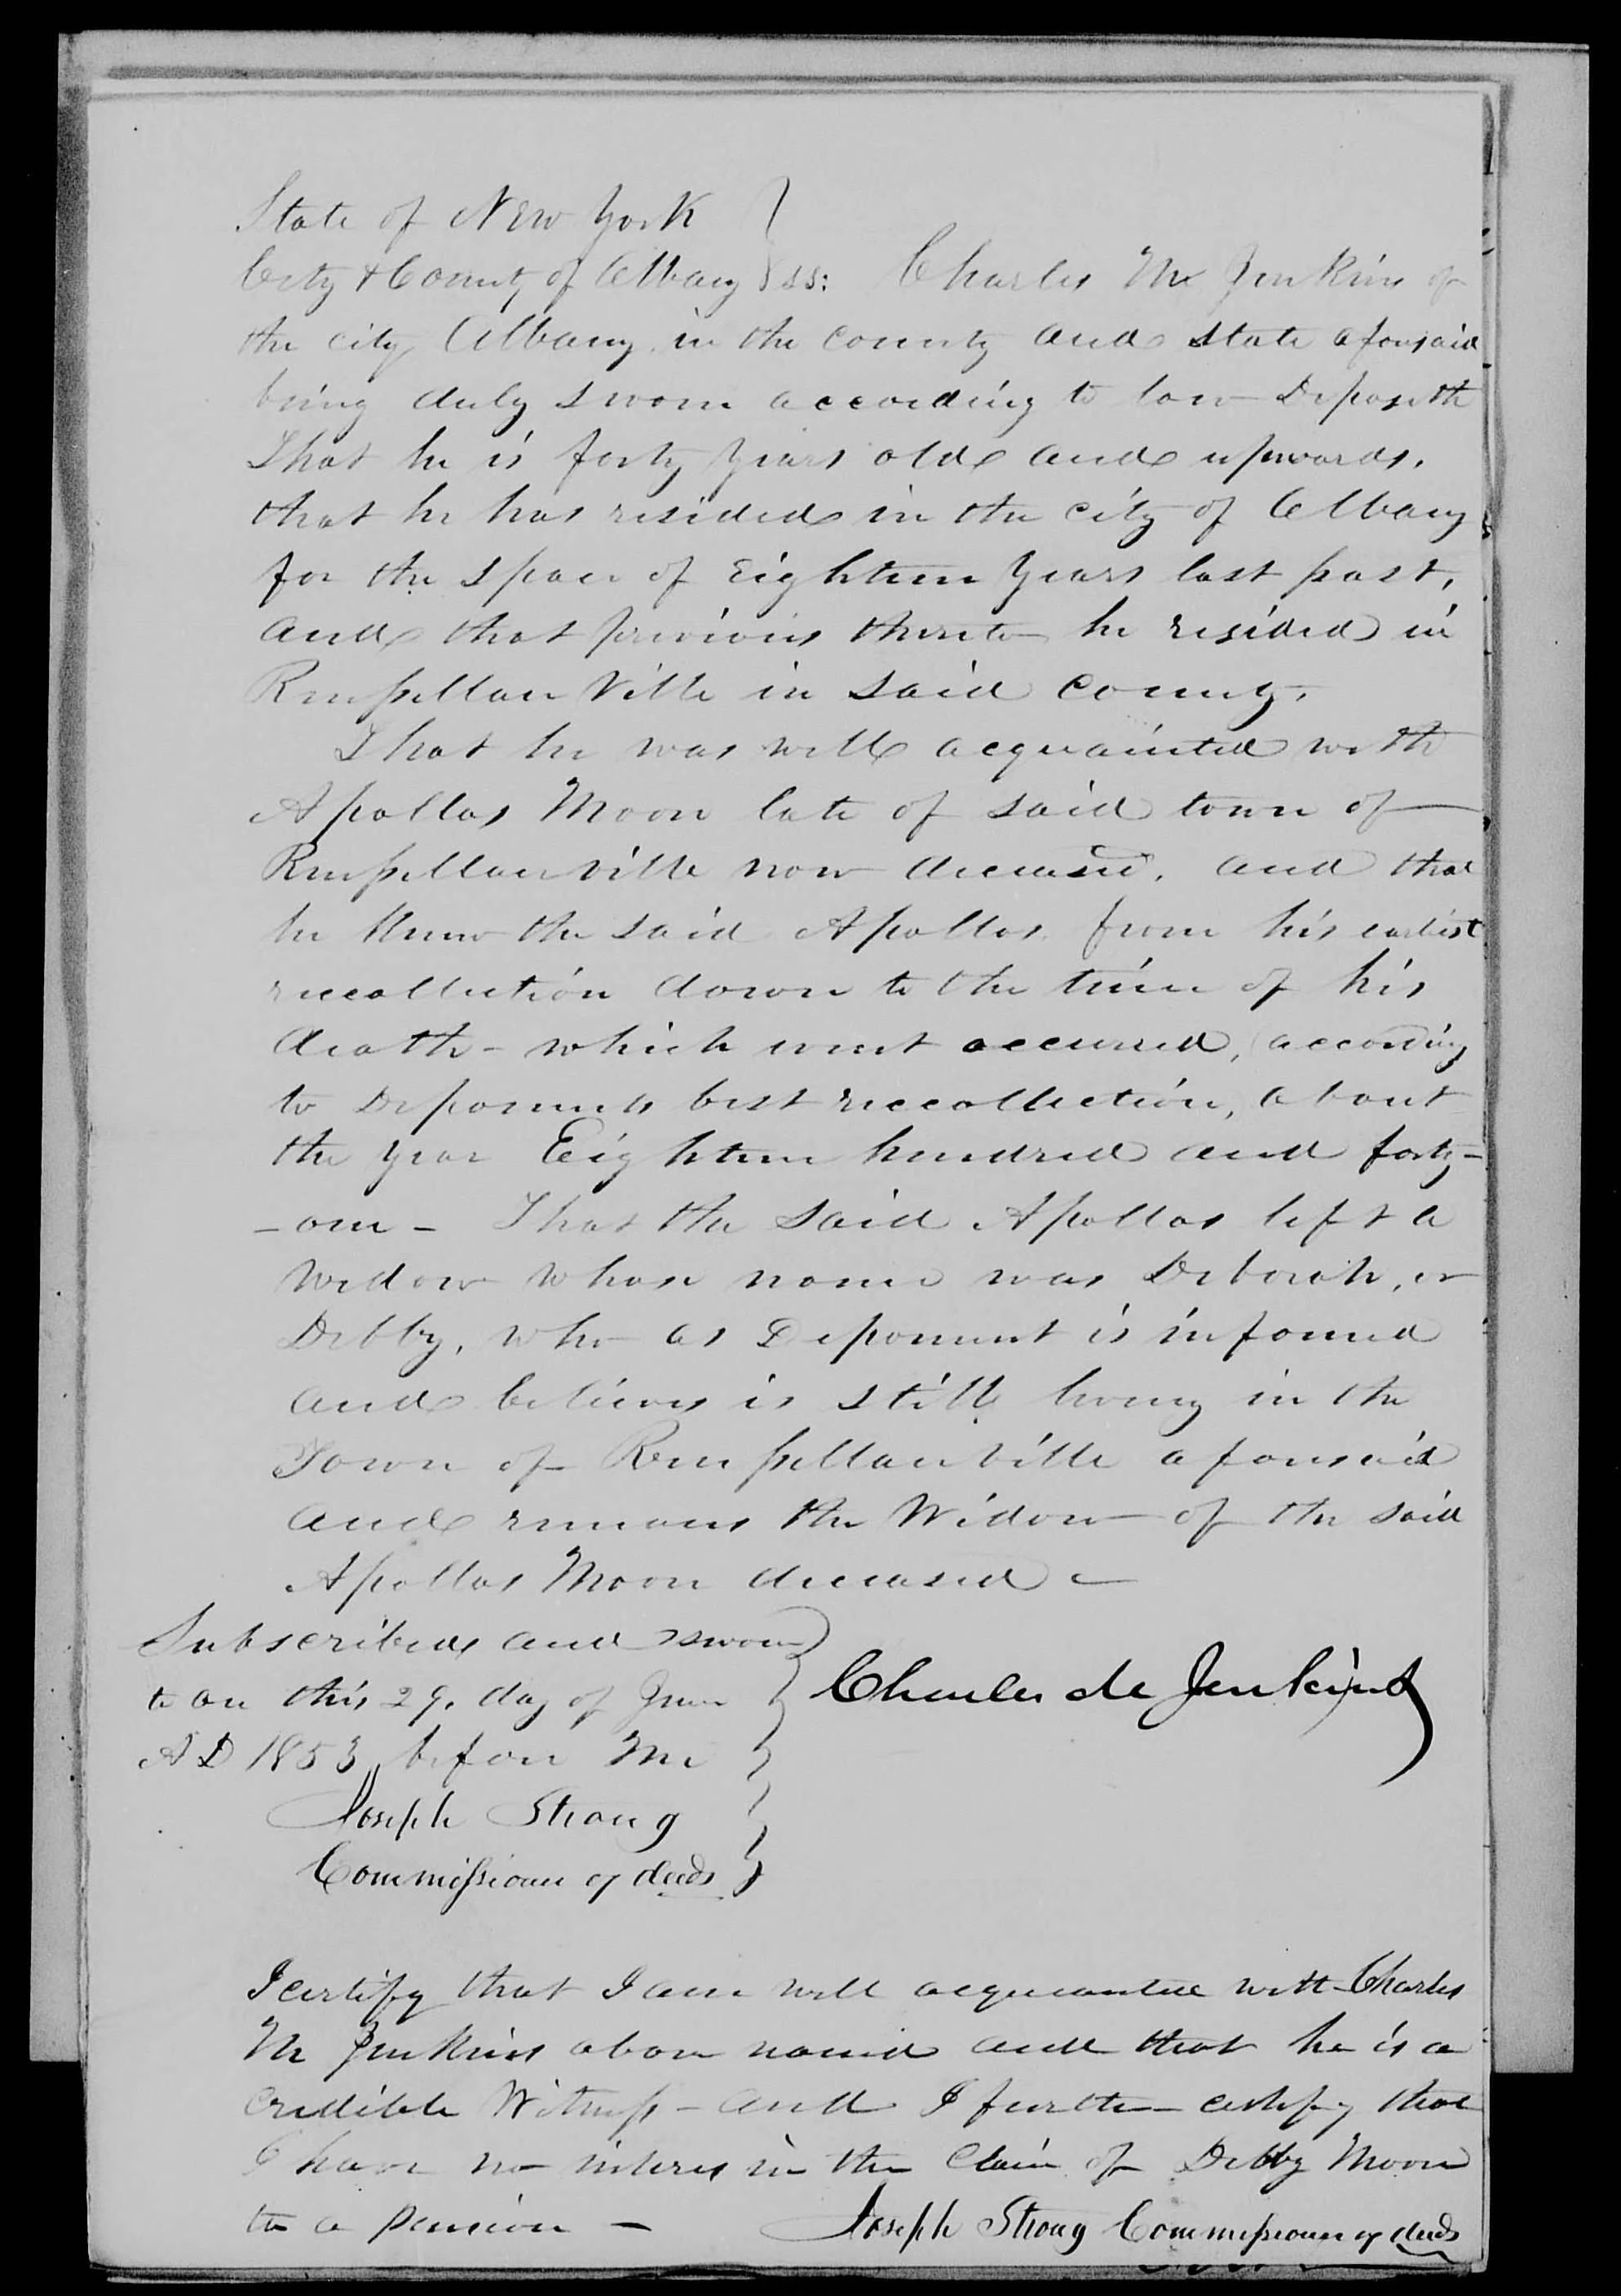 State of New York }
City & County of Albany } ss: Charles M Jenkins of
the city Albany in the county and State aforesaid
being duly sworn according to law Deposeth
That he is forty years old and upwards,
that he has resided in the city of Albany
for the space of Eighteen years last past,
and that previous thereto he resided in
Renssellaer Ville in said county.
That he was well acquainted with
Apollos Moon late of said town of
Renssellaerville now deceased, and that
he knew the said Apollos from his earliest
reccollection down to the time of his
death - which event occurred, according
to Deponents best reccollection, about
the year Eighteen hundred and forty-
- one - That the said Apollos left a
widow whose name was Deborah, or
Debby, who as Deponent is informed
and believes is still living in the
Town of Renssellaerville aforesaid
and remains the Widow of the said
Apollos Moon deceased -
Subscribed and sworn }
to on this 29. day of June } Charles M Jenkins
A D 1853 before me }
Joseph Strong
Commissioner of deeds }
I certify that I am well acquainted with Charles
M Jenkins above named and that he is a
credible Witness - and I further certify that
I have no interes in the claim of Debby Moon
to a Pension - Joseph Strong Commissioner of deeds